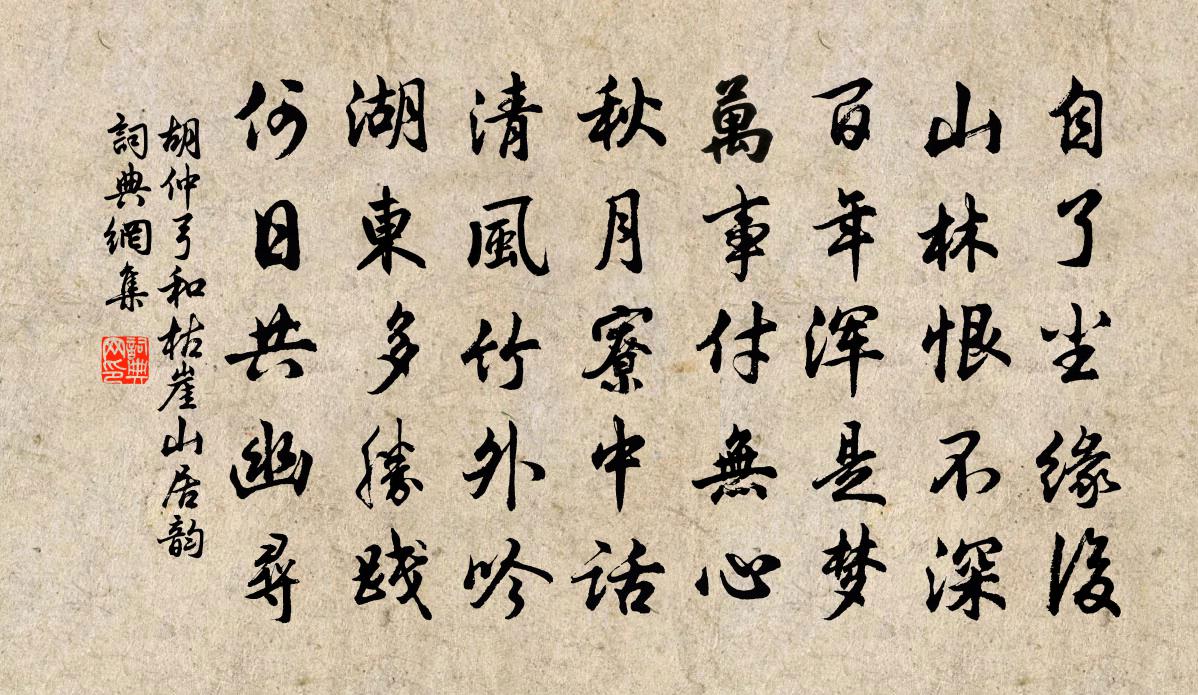 自了尘缘後
山林恨不深
百年浑是梦
萬事付無心
秋月寮中話
清風竹外吟
湖東多勝踐
何日共幽尋
胡仲弓和枯崖山居韵
詞典網集
詞典网印